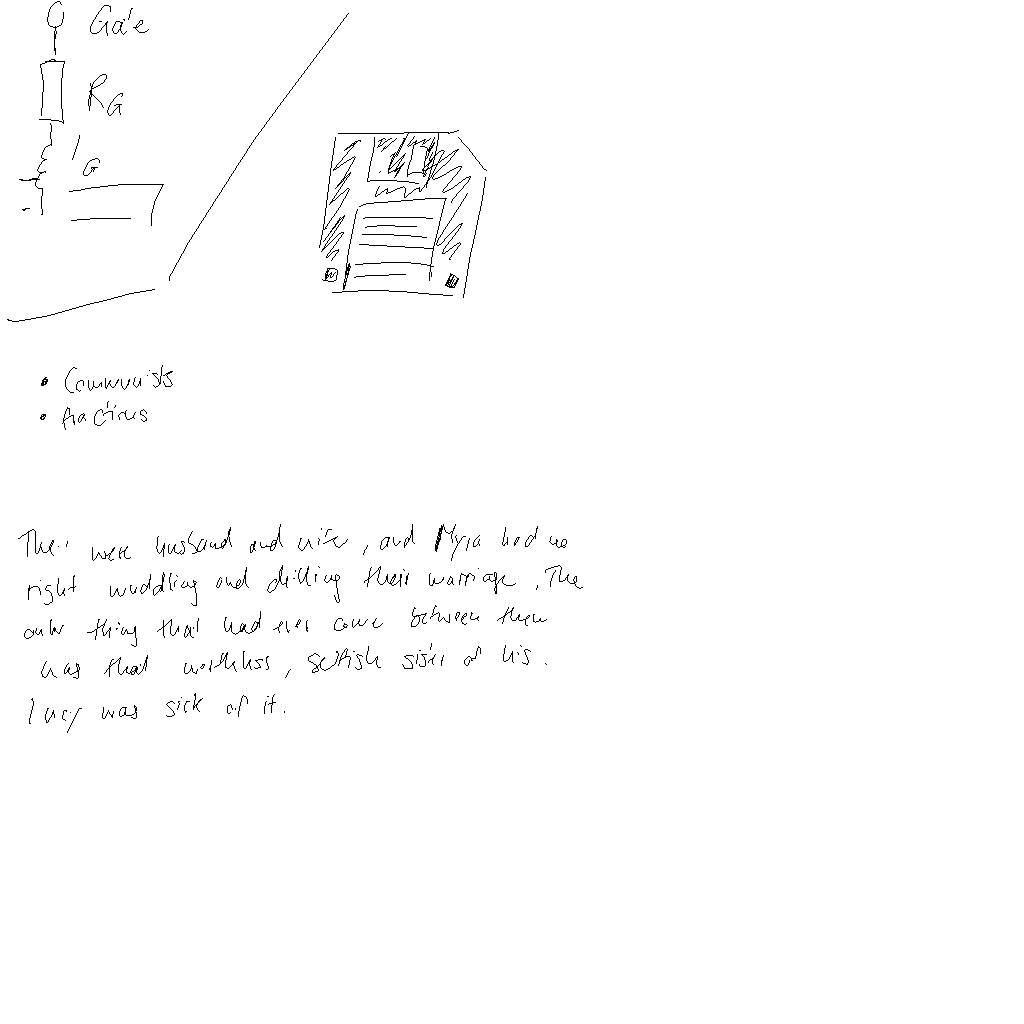 Gate
R_G
L_G
• Communists
• fractions
They were husband and wife, and Myra had no
right muddling and drilling their marriage. The
only thing that had ever come between them
was that worthless, selfish sister of his.
Lucy was sick of it.